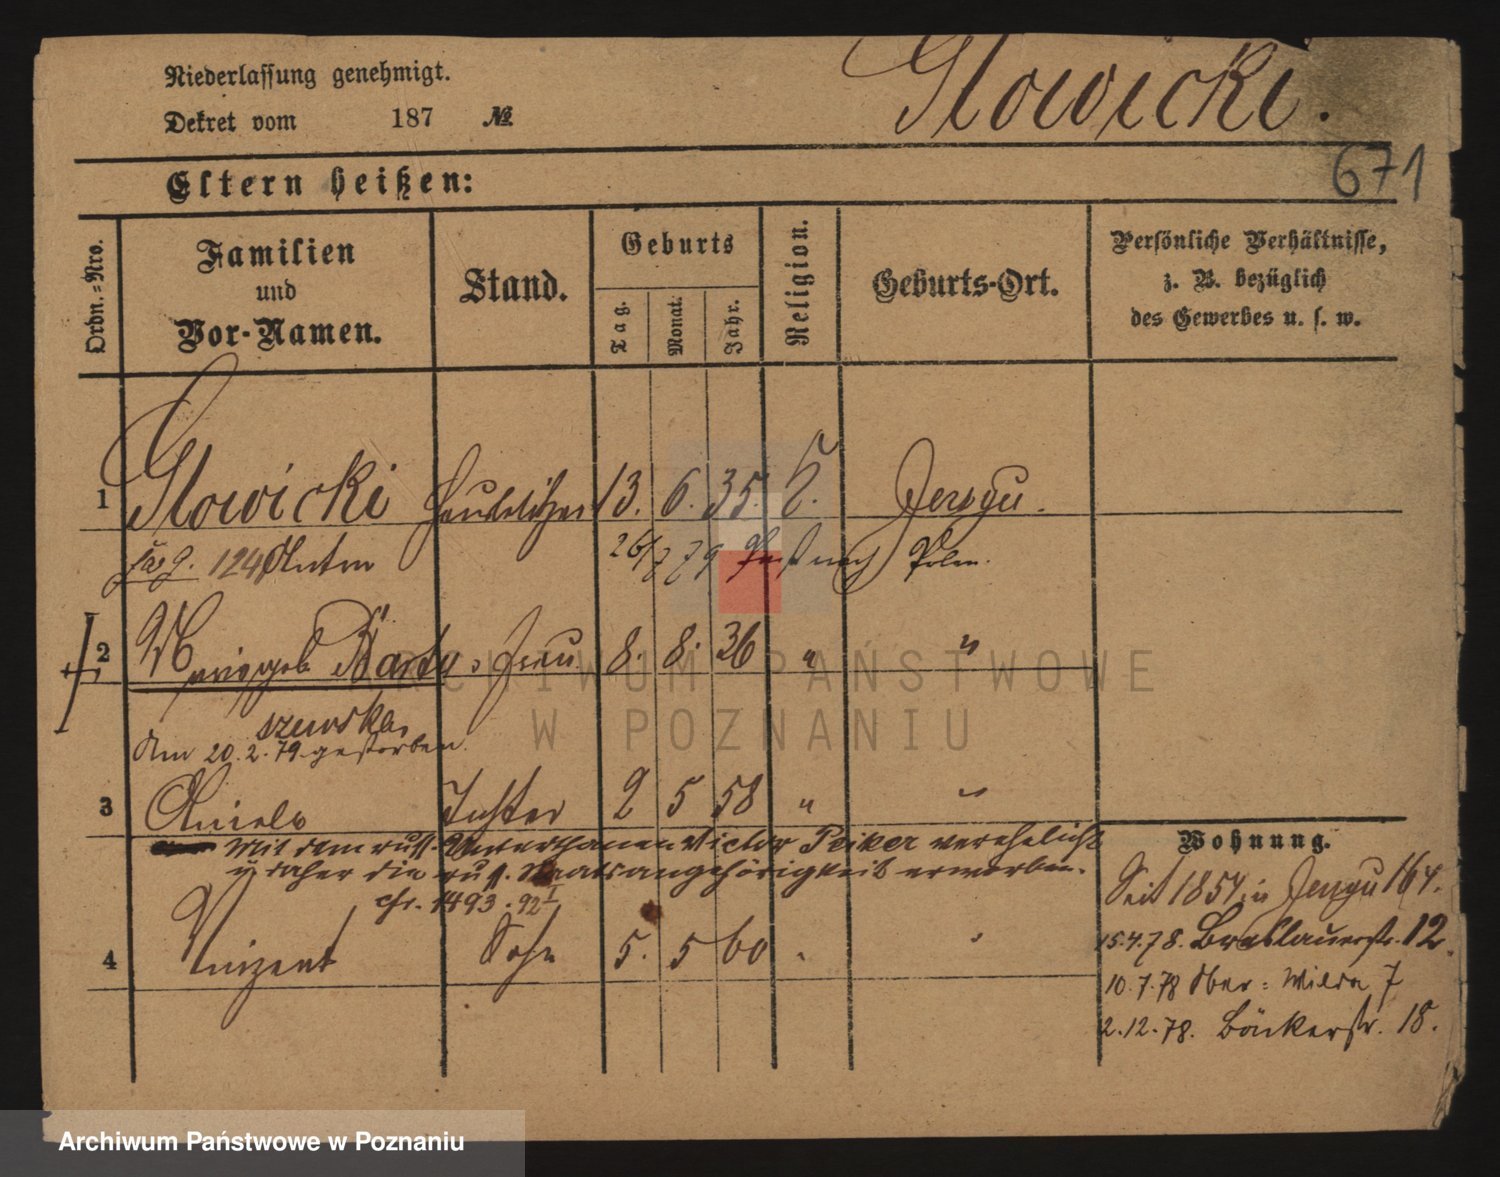 Niederlassung genehmigt.
Dekret vom 187 №
Glowicki.
671
Eltern heißen:
Ordn.-Nro.
Familien und Vor-Namen.
Stand.
Geburts
Tag.
Monat.
Jahr.
Religion.
Geburts-Ort.
Persönliche Verhältnisse,
z. B. bezüglich
des Gewerbes u. s. w.
1 Glowicki 13. 6. 35. Jerzyu.
124 Anton 26/7 79 nach Polen.
2 geb Bartu- Frau 8. 8. 36 " "
szewska,
Am 20.2.79 gestorben.
3 Aniela Tochter 2 5 58 " "
Mit dem russ. Unterthanen Victor Peiker verehelicht
u daher die russ. Staatsangehörigkeit erworben.
cfr. 1893. 92 I
4 Vinzent Sohn 5. 5 60 " "
Wohnung.
Seit 1854 in Jerzyu 164.
15.4.78. Breslauerstr. 12.
10.7.78 Ober-Wilda 7
2.12.78. Bäckerstr. 18.
ARCHIWUM PAŃSTWOWE
W POZNANIU
Archiwum Państwowe w Poznaniu